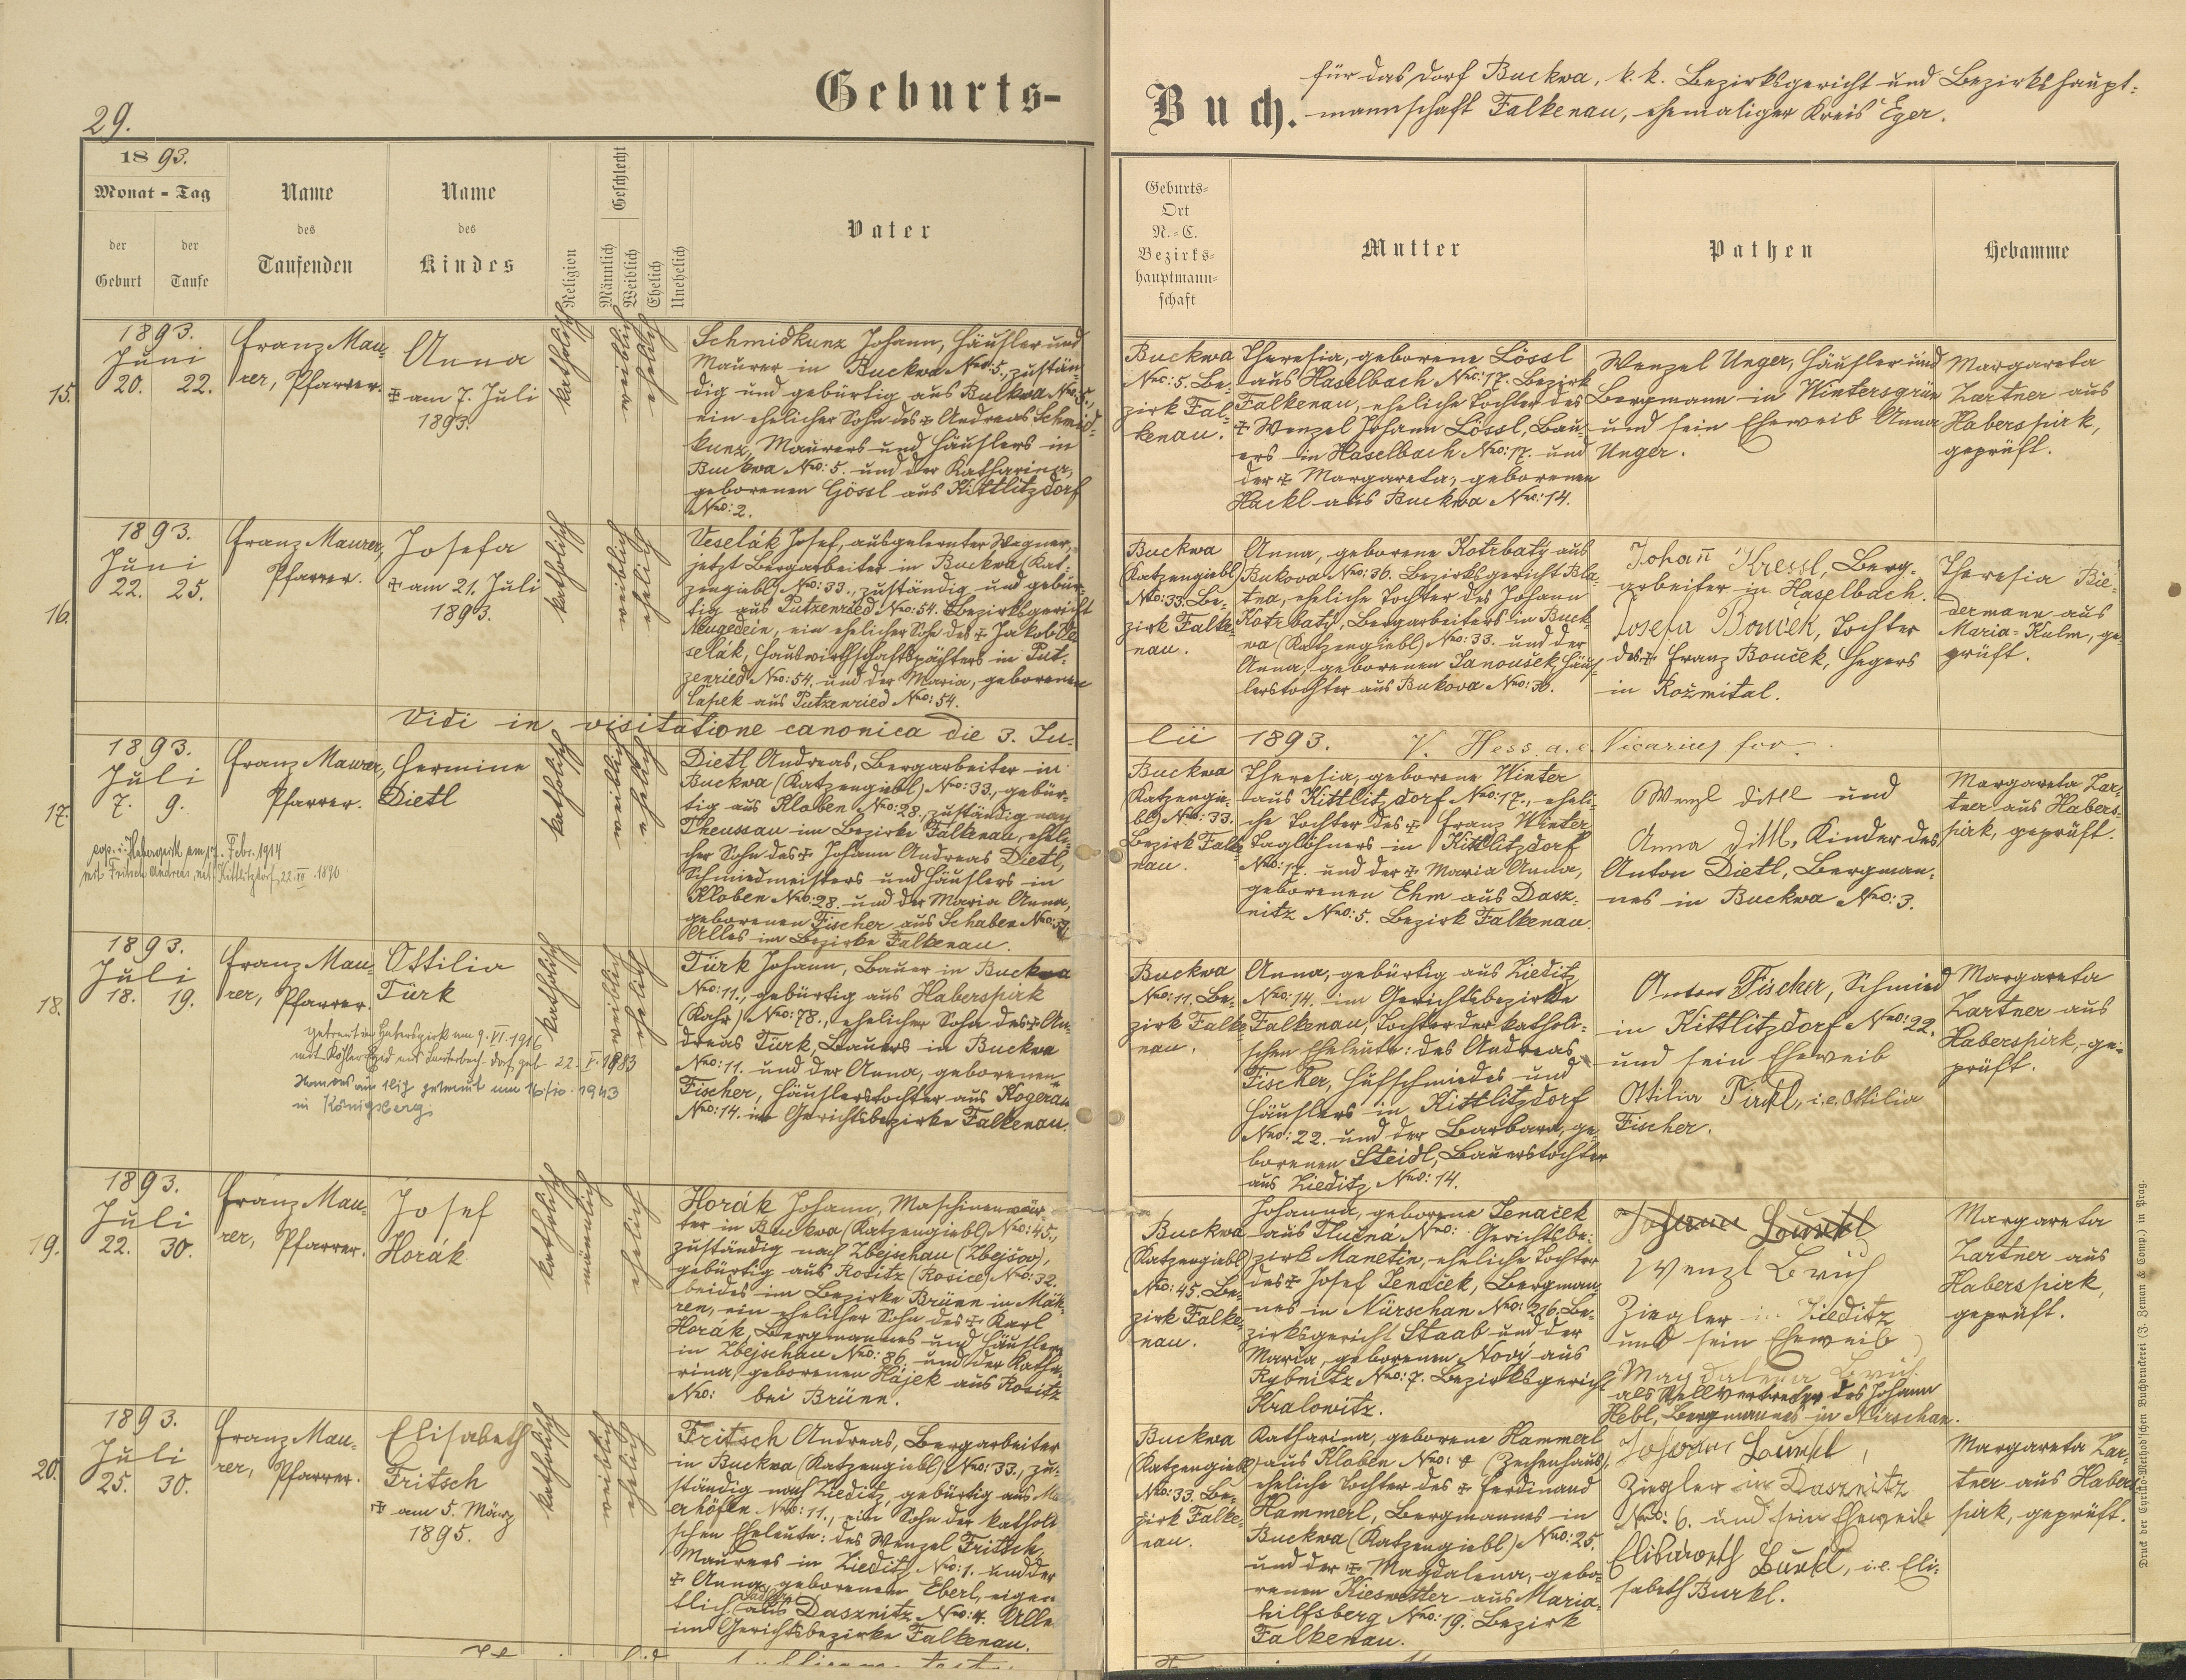 29.
Geburts-
Buch.
für das Dorf Buckwa, k. k. Bezirksgericht und Bezirkshaupt-
mannschaft Falkenau, ehemaliger Kreis Eger.
1893.
Monat - Tag
der Geburt
der Taufe
Name des Taufenden
Name des Kindes
Religion
Geschlecht
Männlich
Weiblich
Ehelich
Unehelich
Vater
Geburts-
Ort
N.-C.
Bezirks-
hauptmann-
schaft
Mutter
Pathen
Hebamme
15.
1893.
Juni
20. 22.
Franz Mau-
rer, Pfarrer.
Anna
✠ am 7. Juli
1893.
katholisch
weiblich
ehelich
Schmidkunz Johann, Häusler und
Maurer in Buckwa Nro: 5., zustän-
dig und gebürtig aus Buckwa Nro: 5.,
ein ehelicher Sohn des ✠ Andreas Schmid-
kunz, Maurers und Häuslers in
Buckwa Nro: 5. und der Katharina,
geborenen Gössl aus Kittlitzdorf
Nro: 2.
Buckwa
Nro: 5. Be-
zirk Fal-
kenau.
Theresia, geborene Lössl
aus Haselbach Nro: 17. Bezirk
Falkenau, eheliche Tochter des
✠ Wenzel Johann Lössl, Bau-
ers in Haselbach Nro: 17. und
der ✠ Margareta, geborenen
Hackl aus Buckwa Nro: 14.
Wenzel Unger, Häusler und
Bergmann in Wintersgrün
und sein Eheweib Anna
Unger.
Margareta
Zartner aus
Haberspirk,
geprüft.
16.
1893.
Juni
22. 25.
Franz Maurer,
Pfarrer.
Josefa
✠ am 21. Juli
1893.
katholisch
weiblich
ehelich
Veselák Josef, ausgelernter Wagner,
jetzt Bergarbeiter in Buckwa (Kat-
zengiebl) Nro: 33., zuständig und gebür-
tig aus Putzenried Nro: 54. Bezirksgericht
Neugedein, ein ehelicher Sohn des ✠ Jakob Ve-
selák, Hauswirthschaftspächters in Put-
zenried Nro: 54. und der Maria, geborenen
aus Putzenried Nro: 54.
Buckwa
(Katzengiebl)
Nro: 33. Be-
zirk Falke-
nau.
Anna, geborene Kotrbatý aus
Bukova Nro: 36. Bezirksgericht Bla-
tna, eheliche Tochter des Johann
Kotrbatý, Bergarbeiters in Buck-
wa (Katzengiebl) Nro: 33. und der
Anna, geborenen Janoušek, Häus-
lerstochter aus Bukova Nro: 36.
Johañ Kressl, Berg-
arbeiter in Haselbach.
Josefa Bouček, Tochter
des ✠ Franz Bouček, Hegers
in Rožmital.
Theresia Bie-
dermann aus
Maria-Kulm, ge-
prüft.
Vidi in visitatione canonica die 3. Ju-
lii 1893. V. Hess a. e. Vicarius for.
17.
1893.
Juli
7. 9.
Franz Maurer,
Pfarrer.
Hermine
Dietl
cop. i. Haberspirk am 17. Febr. 1914
mit Fritsch Andreas, Kittlitzdorf, 1890
katholisch
weiblich
ehelich
Dietl Andreas, Bergarbeiter in
Buckwa (Katzengiebl) Nro: 33., gebür-
tig aus Kloben Nro: 28., zuständig nach
Theussau im Bezirke Falkenau, eheli-
cher Sohn des ✠ Johann Andreas Dietl,
Schmiedmeisters und Häuslers in
Kloben Nro: 28. und der Maria Anna,
geborenen Fischer aus Schaben Nro:
Alles im Bezirke Falkenau.
Buckwa
(Katzengie-
bl) Nro: 33.
Bezirk Falke-
nau.
Theresia, geborene Winter
aus Kittlitzdorf Nro: 17., eheli-
che Tochter des ✠ Franz Winter
Taglöhners in Kittlitzdorf
Nro: 17. und der ✠ Maria Anna,
geborenen Ehm aus Dasz-
nitz Nro: 5. Bezirk Falkenau.
Wenzl Dittl und
Anna Dittl, Kinder des
Anton Dietl, Bergman-
nes in Buckwa Nro: 3.
Margareta Zar-
tner aus Habers-
pirk, geprüft.
18.
1893.
Juli
18. 19.
Franz Mau-
rer, Pfarrer.
Ottilia
Türk
getraut in Haberspirk am 9. VI. 1916
mit Köhler Egid geb. 22. V. 1883
getraut am 16/10. 1943
in Königsberg
katholisch
weiblich
ehelich
Türk Johann, Bauer in Buckwa
Nro: 11., gebürtig aus Haberspirk
(Rahr) Nro: 78., ehelicher Sohn des ✠ An-
dreas Türk, Bauers in Buckwa
Nro: 11. und der Anna, geborenen
Fischer, Häuslerstochter aus Kogerau
Nro: 14. im Gerichtsbezirke Falkenau.
Buckwa
Nro: 11. Be-
zirk Falke-
nau.
Anna, gebürtig aus Zieditz
Nro: 14. im Gerichtsbezirke
Falkenau, Tochter der katholi-
schen Eheleute: des Andreas
Fischer, Hufschmiedes und
Häuslers in Kittlitzdorf
Nro: 22. und der Barbara, ge-
borenen Steidl, Bauerstochter
aus Zieditz Nro: 14.
Anton Fischer, Schmied
in Kittlitzdorf Nro: 22.
und sein Eheweib
Ottilia, i. e. Ottilia
Fischer.
Margareta
Zartner aus
Haberspirk, ge-
prüft.
19.
1893.
Juli
22. 30.
Franz Mau-
rer, Pfarrer.
Josef
Horák
katholisch
männlich
ehelich
Horák Johann, Maschinenwär-
ter in Buckwa (Katzengiebl) Nro: 45.,
zuständig nach Zbejschau (Zbejšov),
gebürtig aus Rositz (Rosice) Nro: 32.
beides im Bezirke Brünn in Mäh-
ren, ein ehelicher Sohn des ✠ Karl
Horák, Bergmannes und Häuslers
in Zbejschau Nro: 86. und der Katha-
rina, geborenen Hájek aus Rositz
Nro: bei Brünn.
Buckwa
(Katzengiebl)
Nro: 45. Be-
zirk Falke-
nau.
Johanna, geborene Lenaček
aus Hlučná Nro: Gerichtsbe-
zirk Manetin, eheliche Tochter
des ✠ Josef Lenaček, Bergman-
nes in Nürschan Nro: 216. Be-
zirksgericht Staab und der
Maria, geborenen Nový aus
Rybnitz Nro: 7. Bezirksgericht
Kralowitz.
Wenzl
Ziegler in Zieditz
und sein Eheweib
Magdalena
als Stellvertreter des Johann
Hebl, Bergmannes in Nirschan.
Margareta
Zartner aus
Haberspirk,
geprüft.
20.
1893.
Juli
25. 30.
Franz Mau-
rer, Pfarrer.
Elisabeth
Fritsch
✠ am 5. März
1895.
katholisch
weiblich
ehelich
Fritsch Andreas, Bergarbeiter
in Buckwa (Katzengiebl) Nro: 33., zu-
ständig nach Zieditz, gebürtig aus Ma-
erhöfen Nro: 11., ein Sohn der katholi-
schen Eheleute: des Wenzel Fritsch,
Maurers in Zieditz Nro: 1. und der
✠ Anna, geborenen Eberl, eigen-
tlich aus Dasznitz Nro: 4. Alle
im Gerichtsbezirke Falkenau.
Buckwa
(Katzengiebl)
Nro: 33. Be-
zirk Falke-
nau.
Katharina, geborene Hammerl
aus Kloben Nro: 4 (Zechenhaus),
eheliche Tochter des ✠ Ferdinand
Hammerl, Bergmannes in
Buckwa (Katzengiebl) Nro: 25.
und der ✠ Magdalena, gebo-
renen Kieswetter aus Maria-
hilfsberg Nro: 19. Bezirk
Falkenau.
Johann Burkl,
Ziegler in Dasznitz
Nro: 6. und sein Eheweib
Elisabeth Burkl, i. e. Eli-
sabeth Burkl.
Margareta Zar-
tner aus Habers-
pirk, geprüft.
Druck der Cyrillo-Method'schen Buchdruckerei (J. Zeman & Comp.) in Prag.